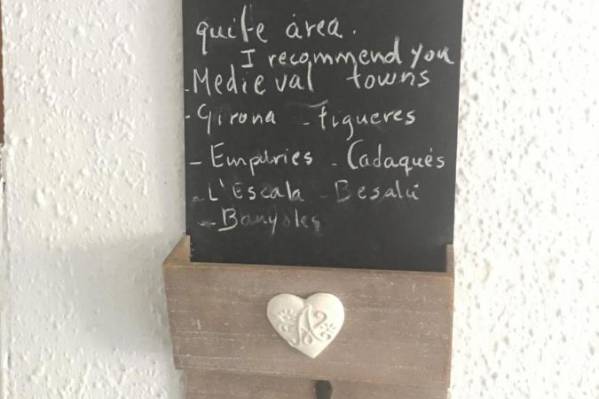 quite área.
I recommend you
- Medieval towns
- Girona - Figueres
- Empúries - Cadaqués
- L'Escala - Besalú
- Banyoles